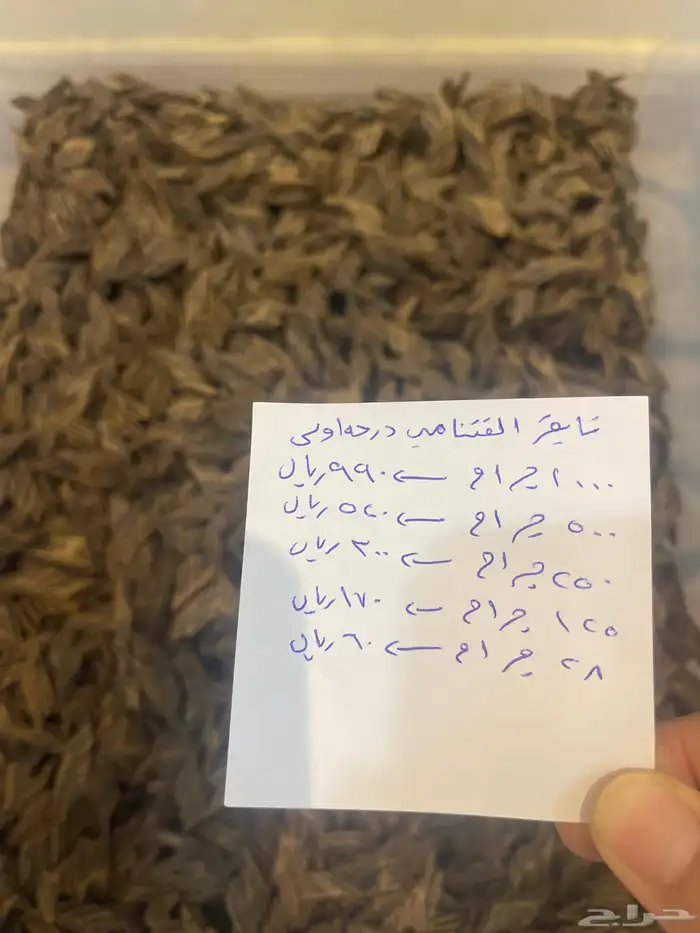 تايقر الفتنامي درجه اولى
١٠٠٠ جرام ← ٩٩٠ ريال
٥٠٠ جرام ← ٥٢٠ ريال
٢٥٠ جرام ← ٣٠٠ ريال
١٢٥ جرام ← ١٧٠ ريال
٢٨ جرام ← ٦٠ ريال
حراج